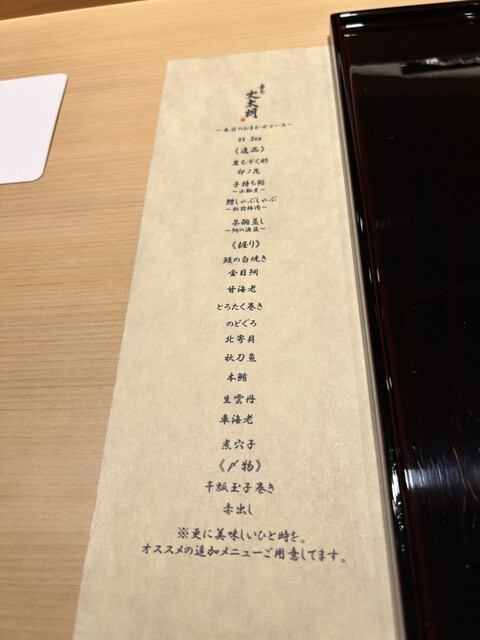 丈太朗
～本日のおまかせコース～
25 Sep
《逸品》
岩もずく酢
卯ノ花
子持ち鮎
～山椒煮～
鱧しゃぶしゃぶ
～松前梅肉～
茶碗蒸し
《握り》
鰻の白焼き
金目鯛
甘海老
とろたく巻き
のどぐろ
北寄貝
秋刀魚
本鮪
生雲丹
車海老
煮穴子
《〆物》
干瓢玉子巻き
赤出し
※更に美味しいひと時を。
オススメの追加メニューご用意してます。